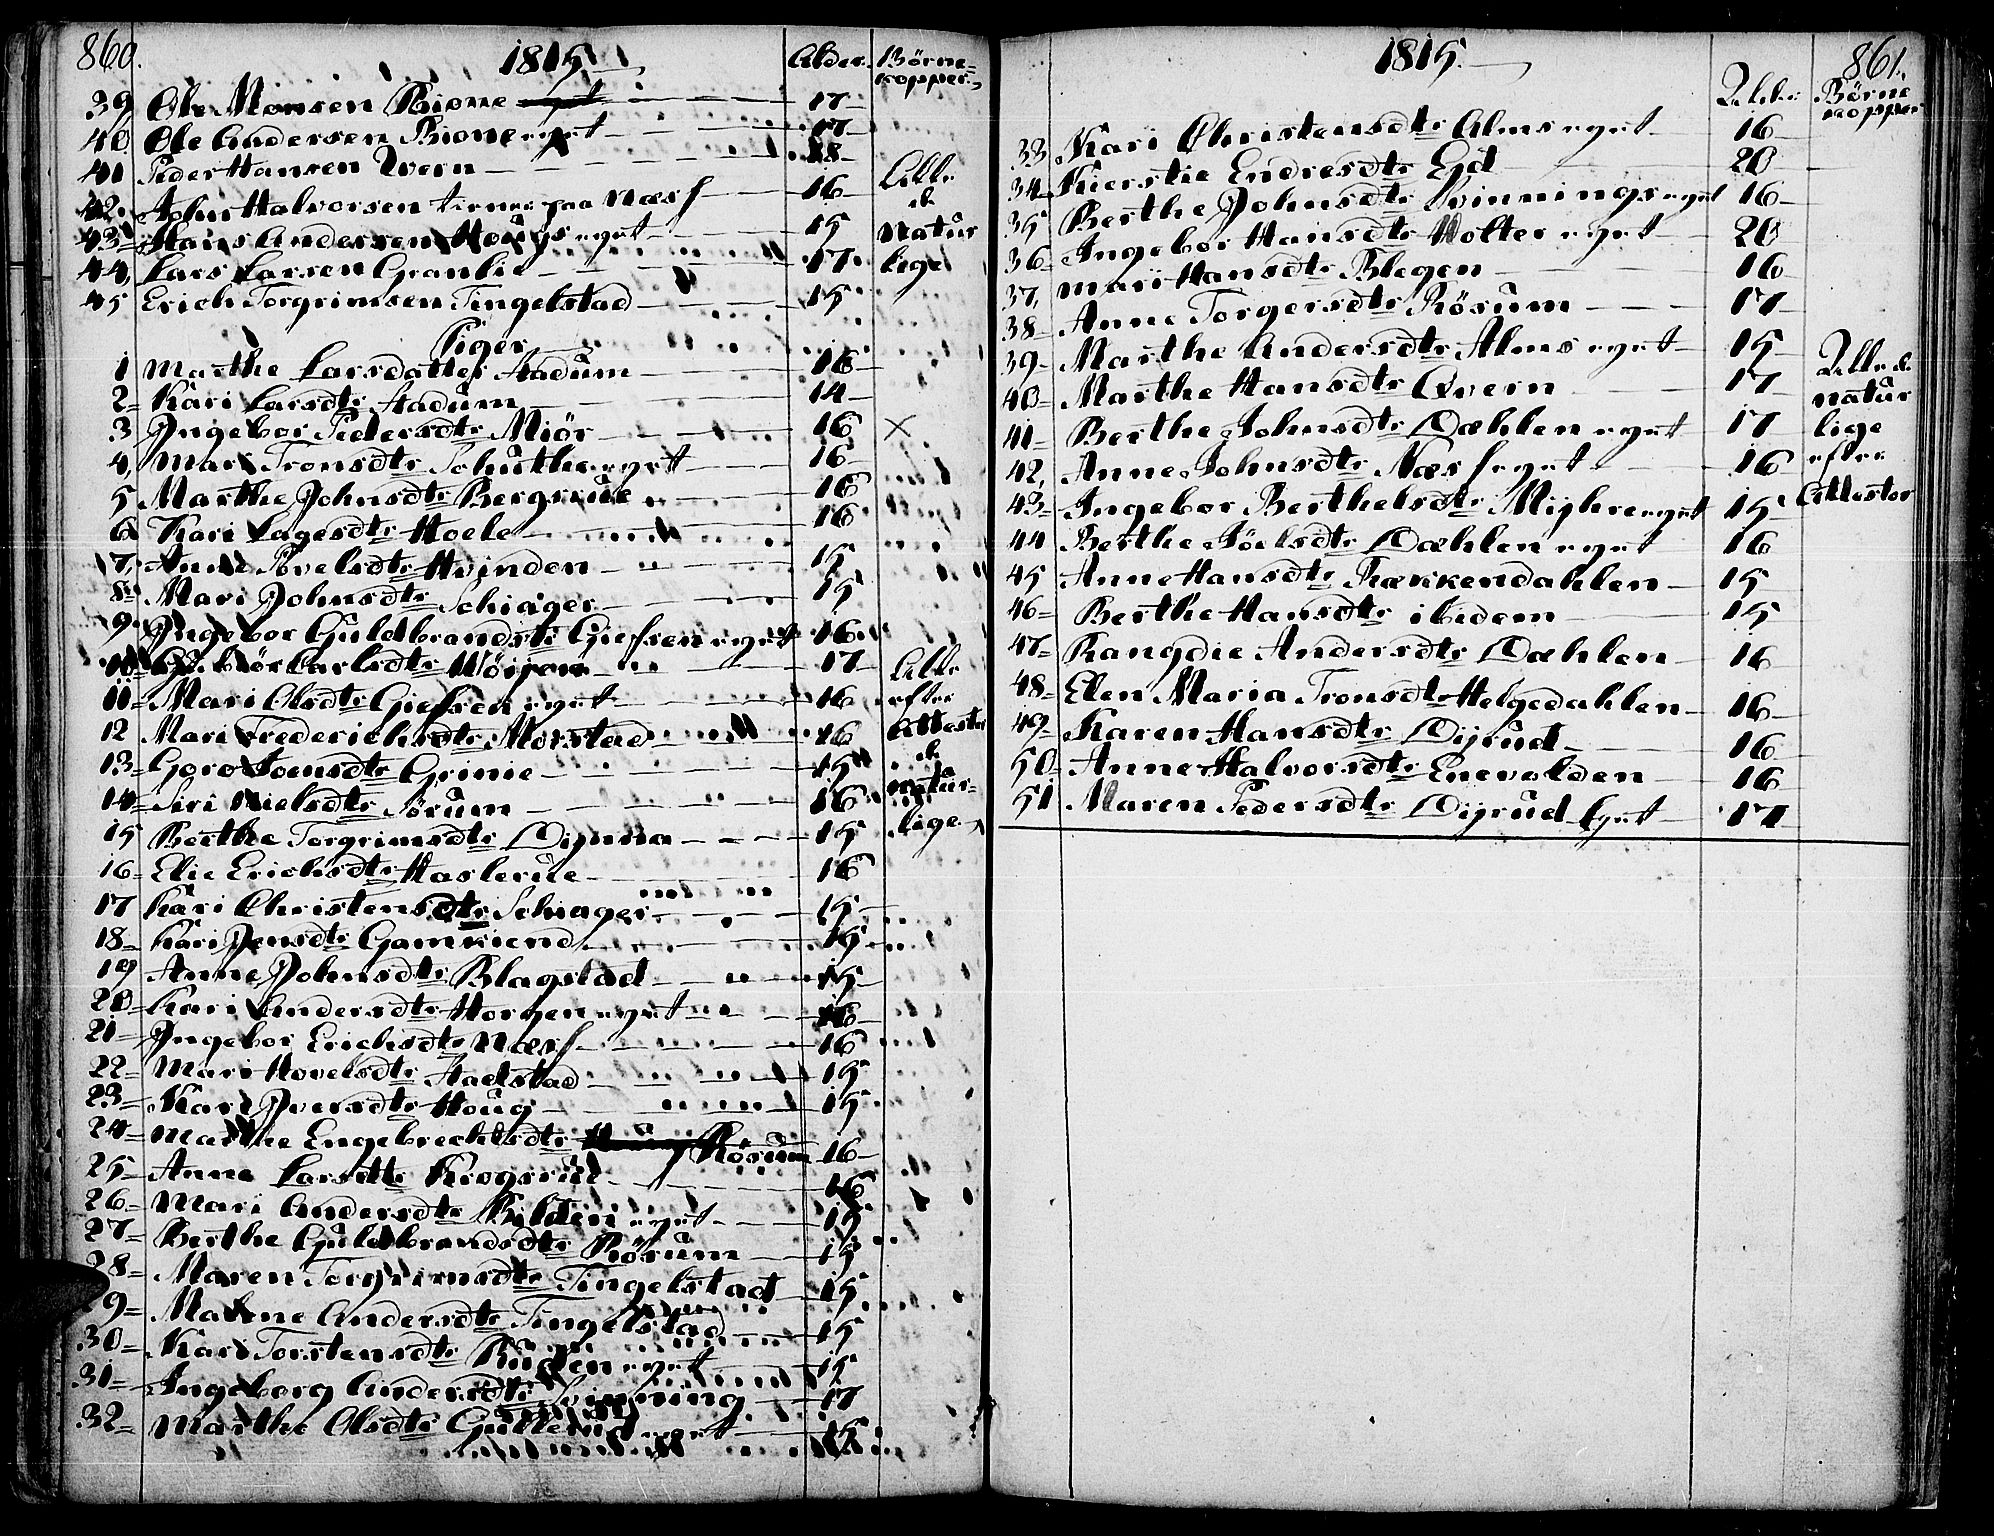 860.
1815
Alder. Börne-
kopper.
39 Ole Monsen Rione 17
40 Ole Andersen Bione eyet 17
41 Peder Hansen Qvern 18
42. John Halvorsen paa Næss 16
43 Hans Andersen Hougs eyet 15
44 Lars Larsen Granlie 17
45 Erich Torgrimsen Tingelstad 15
Alle
de
Natur
lige
Piger
1 Marthe Larsdatter Hadum 16
2 Kari Larsdtr Hadum 14
3 Ingebor Pedersdtr Miör 16 ×
4 Mari Tronsdtr Schuthe eyet 16
5 Marthe Johnsdtr Bergsrue 16
6 Kari Lagesdtr Hoele 16
7 Anne Povelsdtr Hvinden 15
8 Mari Johnsdtr Schiager 15
9 Ingebor Guldbrandsdtr Giefsen eyet 16
10 Carlsdtr 17
11 Mari Olsdtr Giefsen eyet 16
12 Mari Frederichsdtr Morstad 16
13 Goro Joensdtr Grinie 15
14 Siri Nielsdtr Sörum 16
15 Berthe Torgrimsdtr Dynna 15
Alle
efter
Attester
de
natur-
lige
16 Elie Erichsdtr Haslerue 16
17 Kari Christensdtr Schiager 15
18 Kari Jensdtr Gamkiend 15
19 Anne Johnsdtr Blagstad 15
20 Kari Andersdtr Horgen eyet 16
21 Ingebor Erichsdtr Næss 16
22 Mari Hovelsdtr Hadstad 15
23 Kari Iversdtr Houg 15
24 Marthe Engebrechtsdtr Röisum 16
25 Anne Larsdtr Krogsrue 16
26 Mari Andersdtr Bilden eyet 15
27 Berthe Guldbrandsdtr Rösum 15
28 Maren Torgrimsdtr Tingelstad 15
29 Malene Andersdtr Tingelstad 15
30 Kari Torstensdtr Ruden eyet 15
31 Ingeborg Andersdtr Svinning 17
32 Marthe Olsdtr eyet 15
1815.
861.
Alder Börne
kopper
33 Kari Christensdtr Alms eyet 16
34 Kierstie Endresdtr Egd 20
35 Berthe Johnsdtr Svinnings eyet 16
36 Ingebor Hansdtr Holter eyet 20
37 Mari Hansdtr Blegen 16
38 Anne Torgersdtr Rösum 17
39 Marthe Andersdtr Alms eyet 15
40 Marthe Hansdtr Qvern 17
41 Berthe Johnsdtr Dæhlen eyet 17
42 Anne Johnsdtr Næss eyet 16
43 Ingebor Berthelsdtr Myhre eyet 15
Alle de
natur
lige
efter
Attester
44 Berthe Jöelsdtr Dæhlen eyet 16
45 Anne Hansdtr Rækkendahlen 15
46 Berthe Hansdtr ibidem 15
47 Rangdie Andersdtr Dæhlen 16
48 Elen Maria Tronsdtr Helgedahlen 16
49 Karen Hansdtr Dijrud 16
50 Anne Halvorsdtr Enevolden 16
51 Maren Pedersdtr Dijrud Eyet 17